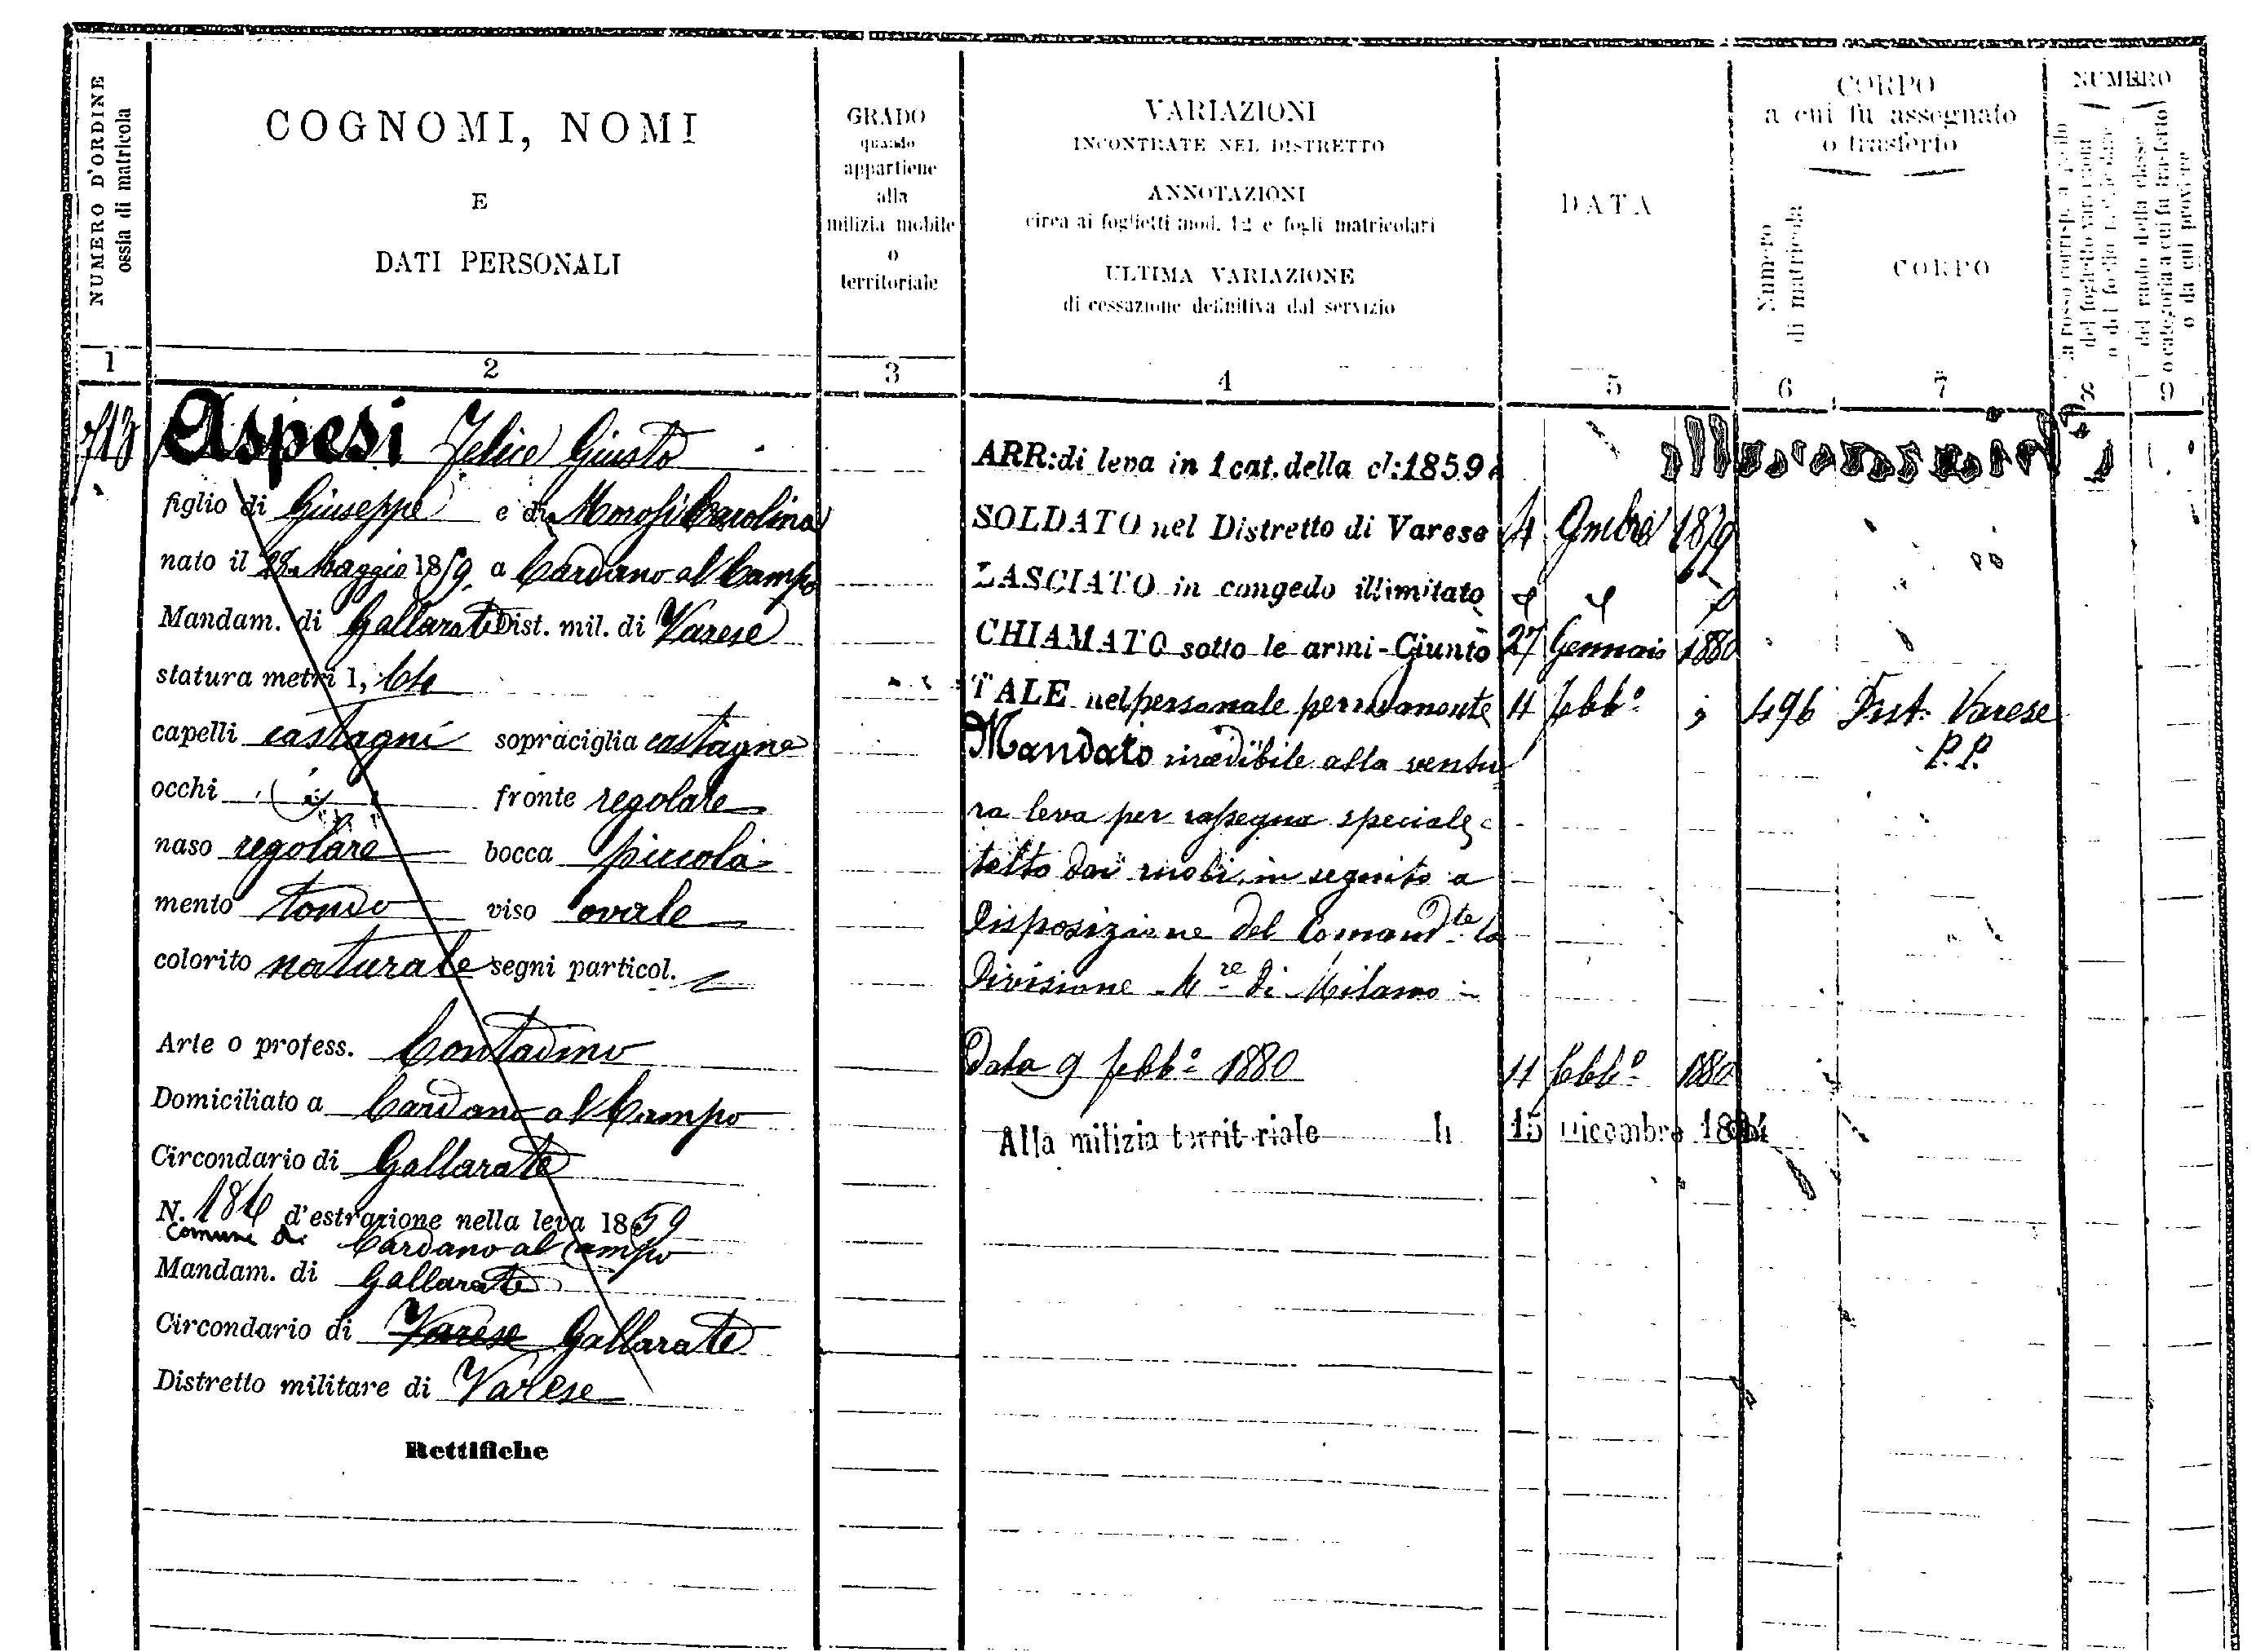 NUMERO D'ORDINE
ossia di matricola
COGNOMI, NOMI
E
DATI PERSONALI
GRADO
quando
appartiene
alla
milizia mobile
o
territoriale
VARIAZIONI
INCONTRATE NEL DISTRETTO
ANNOTAZIONI
circa ai foglietti mod. 12 e fogli matricolari
ULTIMA VARIAZIONE
di cessazione definitiva dal servizio
DATA
CORPO
a cui fu assegnato
o trasferto
Numero
di matricola
CORPO
NUMERO
del ruolo della classe
o categoria a cui fu trasferto
o da cui proviene
1 2 3 4 5 6 7 8 9
Aspesi Felice Giusto
figlio di Giuseppe e di Carolina
nato il 28 Maggio 1859 a Cardano al Campo
Mandam. di Gallarate Dist. mil. di Varese
statura metri 1, 64
capelli castagni sopraciglia castagne
occhi fronte regolare
naso regolare bocca piccola
mento tondo viso ovale
colorito naturale segni particol.
Arte o profess. Contadino
Domiciliato a Cardano al Campo
Circondario di Gallarate
N. 186 d'estrazione nella leva 1859
Comune di Cardano al Campo
Mandam. di Gallarate
Circondario di Varese Gallarate
Distretto militare di Varese
Rettifiche
ARR: di leva in 1 cat. della cl: 1859
SOLDATO nel Distretto di Varese 4 9mbre 1879
LASCIATO in congedo illimitato
CHIAMATO sotto le armi - Giunto 27 Gennaio 1880
TALE nel personale permanente 11 febb.o 496 Dist. Varese
P.P.
Mandato rivedibile alla ventu
ra leva per rassegna speciale
tolto dai ruoli in seguito a
disposizione del Comand.te la
Divisione M.re di Milano
Data 9 febb.o 1880 11 febb.o 1880
Alla milizia territ riale li 15 Dicembre